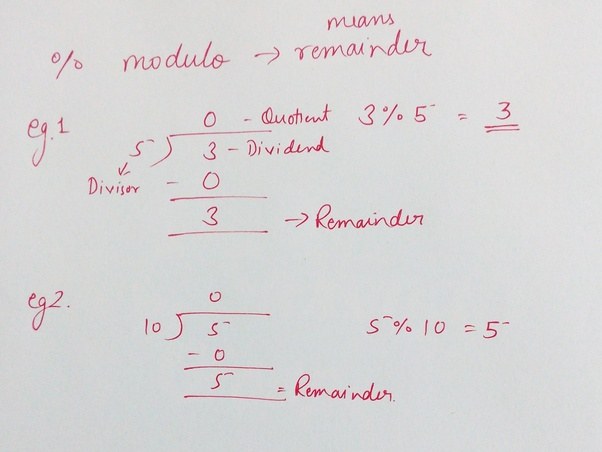 means
% modulo → remainder
eg.1
0 - Quotient 3 % 5 = 3
5 ) 3 - Dividend
Divisor - 0
3 → Remainder
eg2.
0
10 ) 5 5 % 10 = 5
- 0
5 = Remainder.